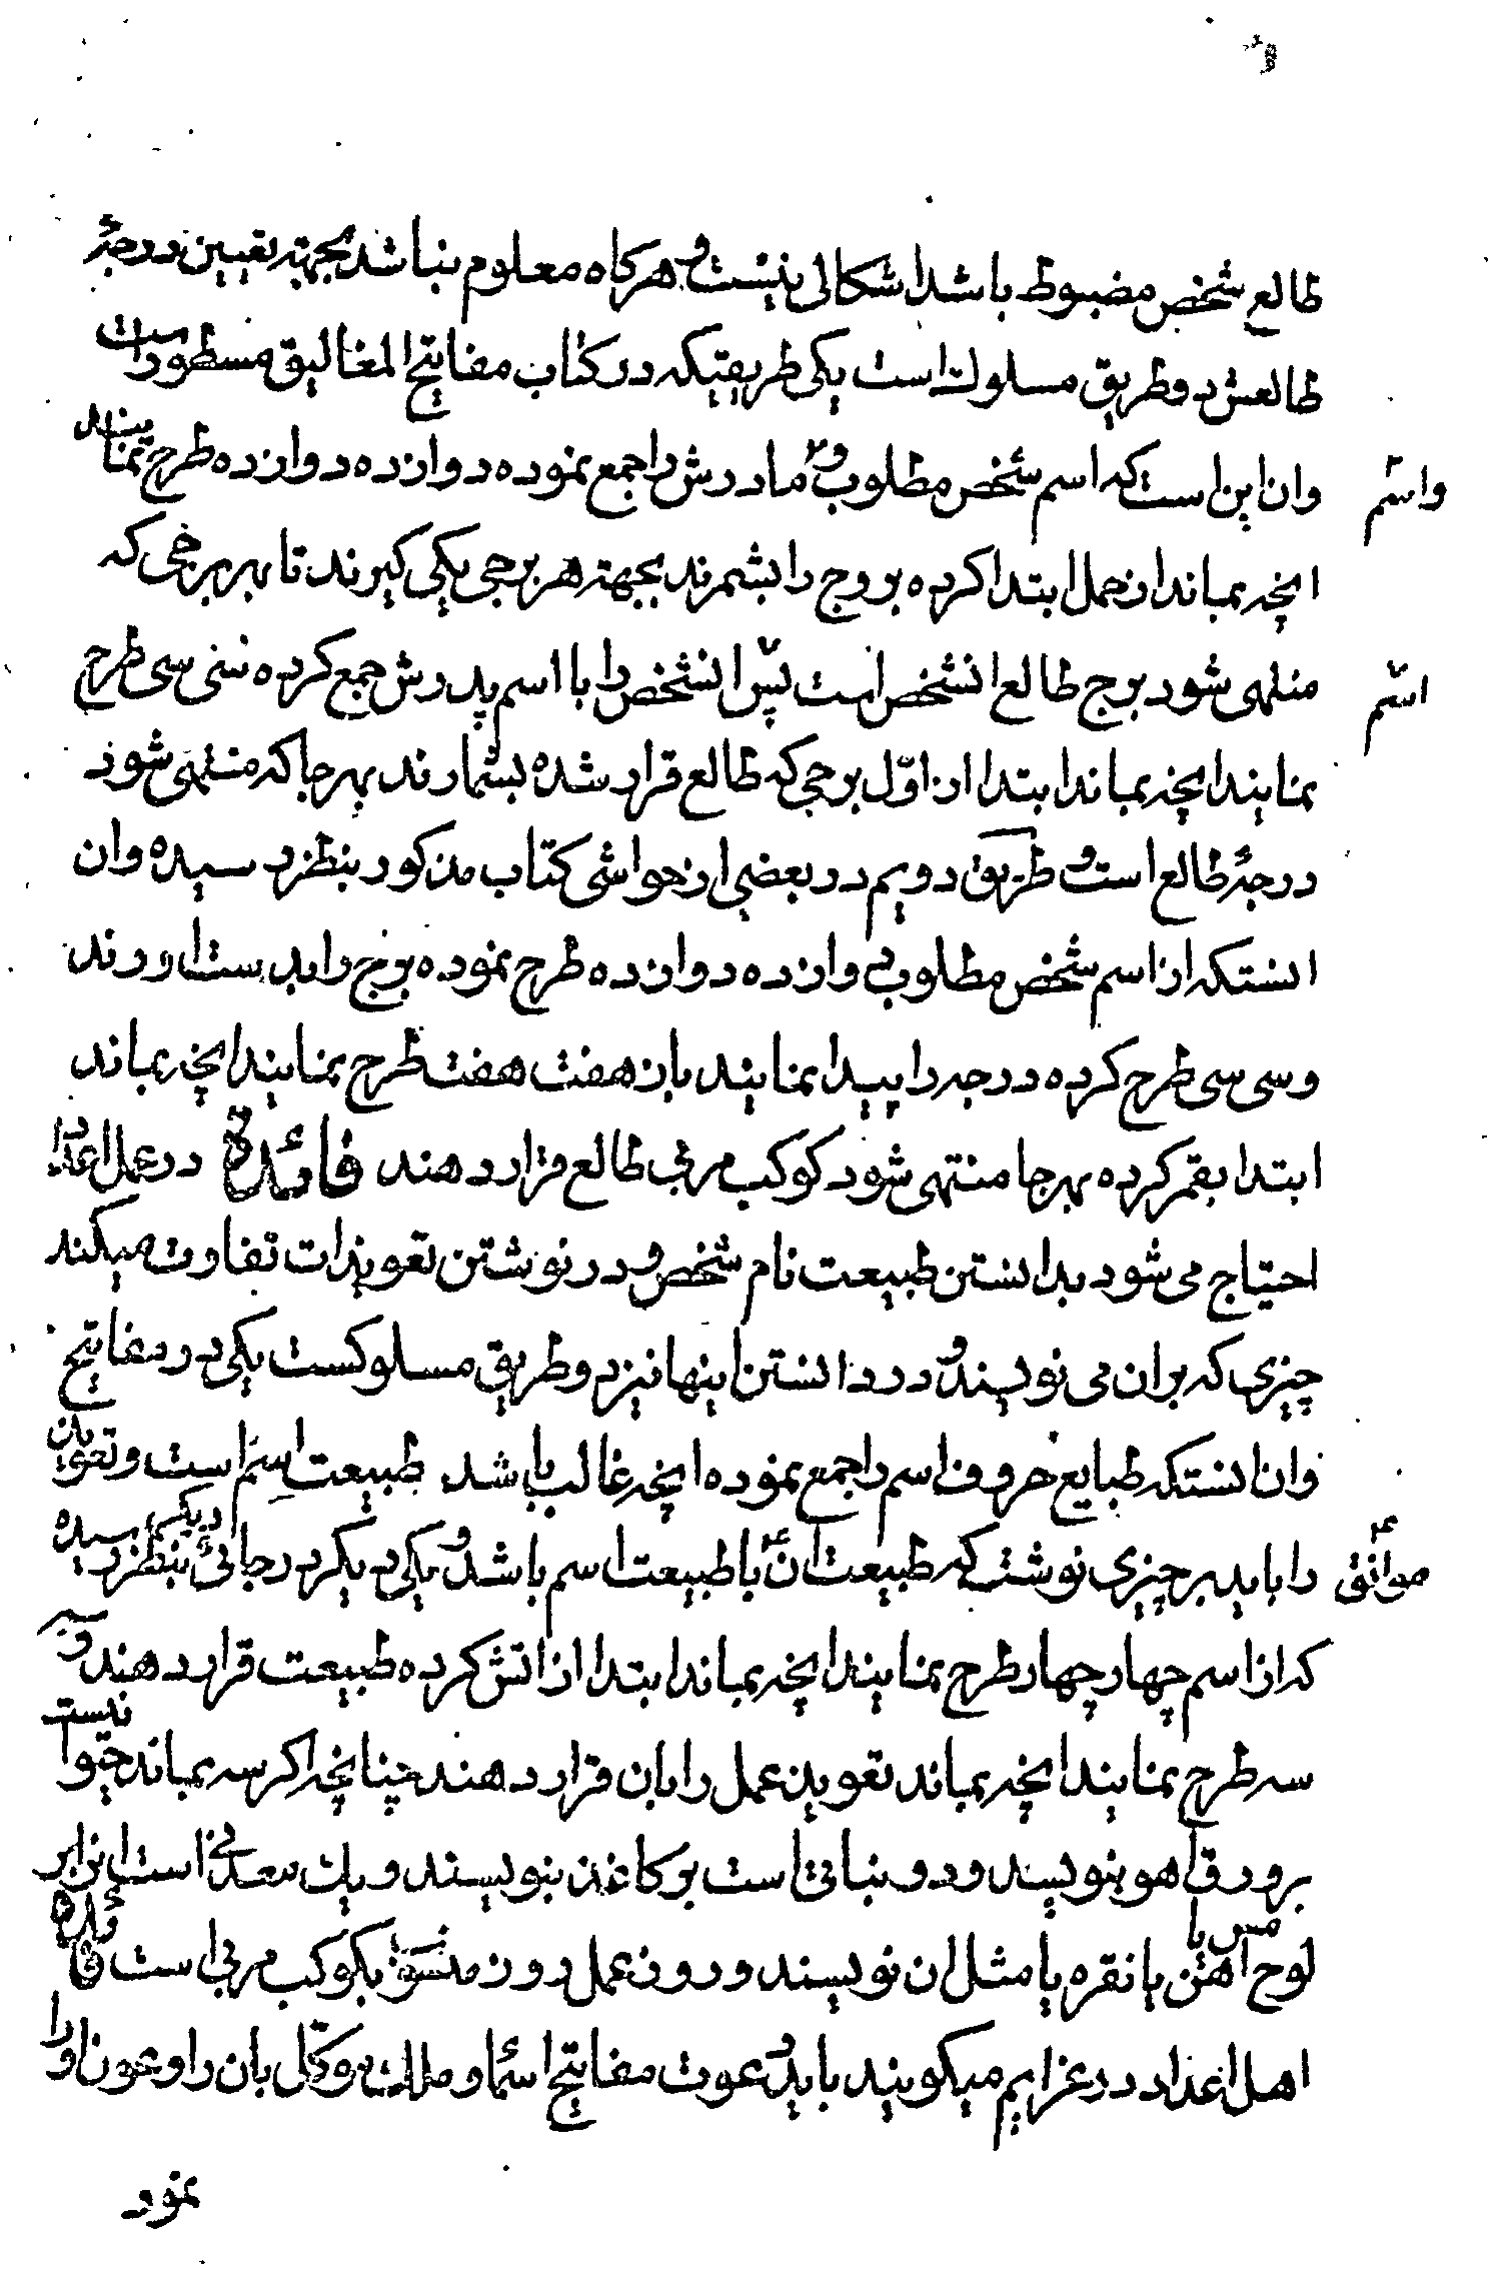 طالع شخص مضبوط باشد اشکالی نیست و هرکاه معلوم نباشد بجهته تعیین درجهٔ
طالعش دو طریق مسلوک است یکی طریقیکه در کتاب مفاتیح المغالیق مسطور است
وان این است که اسم شخص مطلوب و مادرش را جمع نموده دوازده دوازده طرح نمایند
واسم
انچه بماند از حمل ابتدا کرده بروج را بشمرند بجهته هر برجی یکی کیرند تا بهر برجی که
منتهی شود برج طالع انشخص است پس انشخص را با اسم پدرش جمع کرده سی سی طرح
اسم
نمایند انچه بماند ابتدا از اوّل برجی که طالع قرار شده بشمارند بهر جا که منتهی شود
درجهٔ طالع است و طریق دویم در بعضی از حواشی کتاب مذکور بنظر رسیده وان
انستکه از اسم شخص مطلوب دوازده دوازده طرح نموده برج را بدست اورند
وسی سی طرح کرده درجه را پیدا نمایند باز هفت هفت طرح نمایند انچه بماند
ابتدا بقمر کرده بهر جا منتهی شود کوکب مربی طالع قرار دهند فائدة در عمل اعداد
احتیاج می شود بدانستن طبیعت نام شخص و در نوشتن تعویذات تفاوت میکند
چیزی که بران می نویسند و در دانستن اینها نیز دو طریق مسلوکست یکی در مفاتیح
وان انستکه طبایع حروف اسم را جمع نموده انچه غالب باشد طبیعت اسم است و تعویذ
را باید بر چیزی نوشت که طبیعت ان با طبیعت اسم باشد و یکی دیکر در جائی دیکر بنظر رسیده
موافق
که از اسم چهار چهار طرح نمایند انچه بماند ابتدا از اتش کرده طبیعت قرار دهند و سه
سه طرح نمایند انچه بماند تعویذ عمل را بان قرار دهند چنانچه اکر سه بماند حیوانیست
بر ورق اهو بنویسند و دو نباتی است بر کاغذ بنویسند و یک معدنی است این را بر
لوح اهن یا مس یا نقره یا مثل ان نویسند و روز عمل روز منسوب بکوکب مربی است فائدة
اهل اعداد در عزایم میکویند باید دعوت مفاتیح اسما و ملک موکل بان را و عون او را
نمود